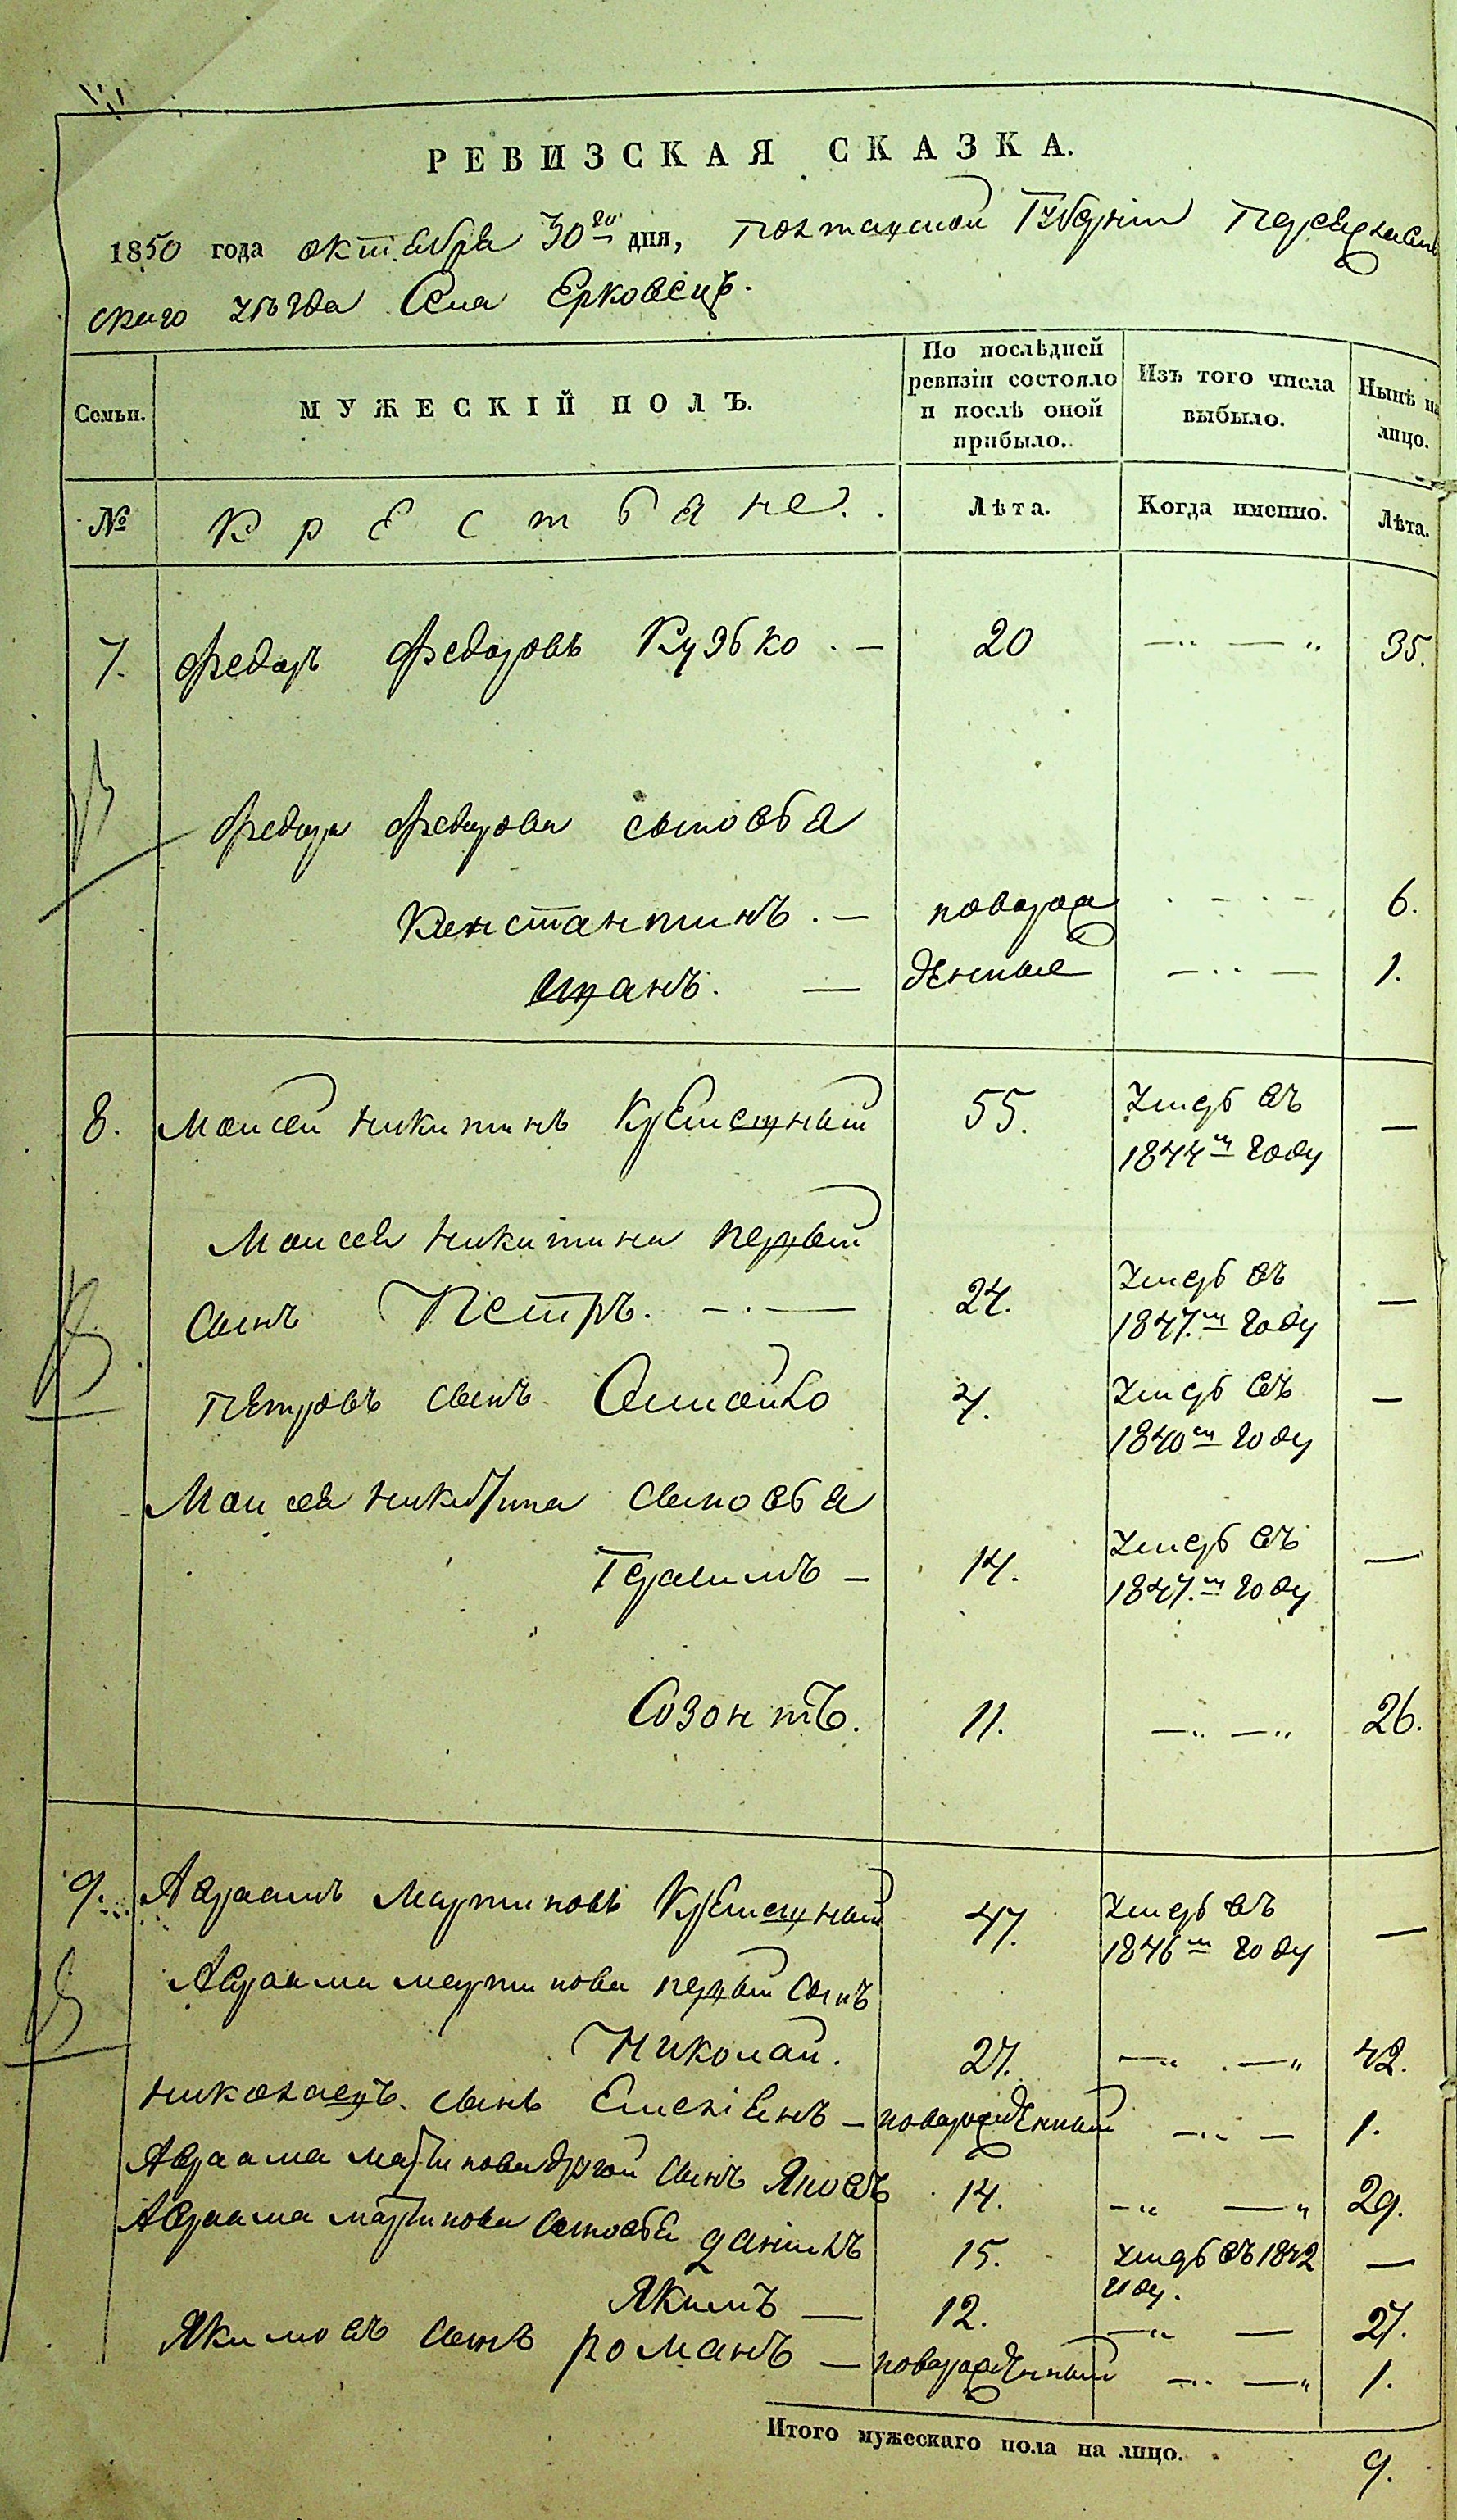 РЕВИЗСКАЯ СКАЗКА.
1850 года октября 30го дня, Полтавской Губерніи Переяслав
скаго уѣзда Села Ерковецъ.
Семьи.
МУЖЕСКІЙ ПОЛЪ.
По послѣдней
ревизіи состояло
и послѣ оной
прибыло.
Изъ того числа
выбыло.
Нынѣ на
лицо.
№
Крестьяне.
Лѣта.
Когда именно.
Лѣта.
7. Федоръ Федоровъ Кузько. — 20 —„ — „ 35.
Федора Федорова сыновья
Константинъ. — новорож 6.
Иванъ. — денные — „ — 1.
8. Моисей Никитинъ 55. Умеръ въ —
1844м году
Моисея Никитина первый
сынъ Петръ. — . — 24. Умеръ въ —
1847.м году
Петровъ сынъ 4. Умеръ въ —
1840м году
Моисея Никитина сыновья
Герасимъ — 14. Умеръ въ —
1847.м году
Созонтъ. 11. —„ —„ 26.
9. Авраамъ Мартиновъ 47. Умеръ въ —
1846м году
Авраама Мартинова первый сынъ
Николай. 27. —„ . —„ 42.
Николаевъ сынъ — новорожденный —„ — 1.
Авраама Мартинова другой сынъ Яковъ 14. —„ —„ 29.
Авраама Мартинова сыновья Данилъ 15. Умеръ въ 1842 —
году.
Якимъ — 12. —„ — 27.
Якимовъ сынъ Романъ — новорожденный —„ —„ 1.
Итого мужескаго пола на лицо. 9.